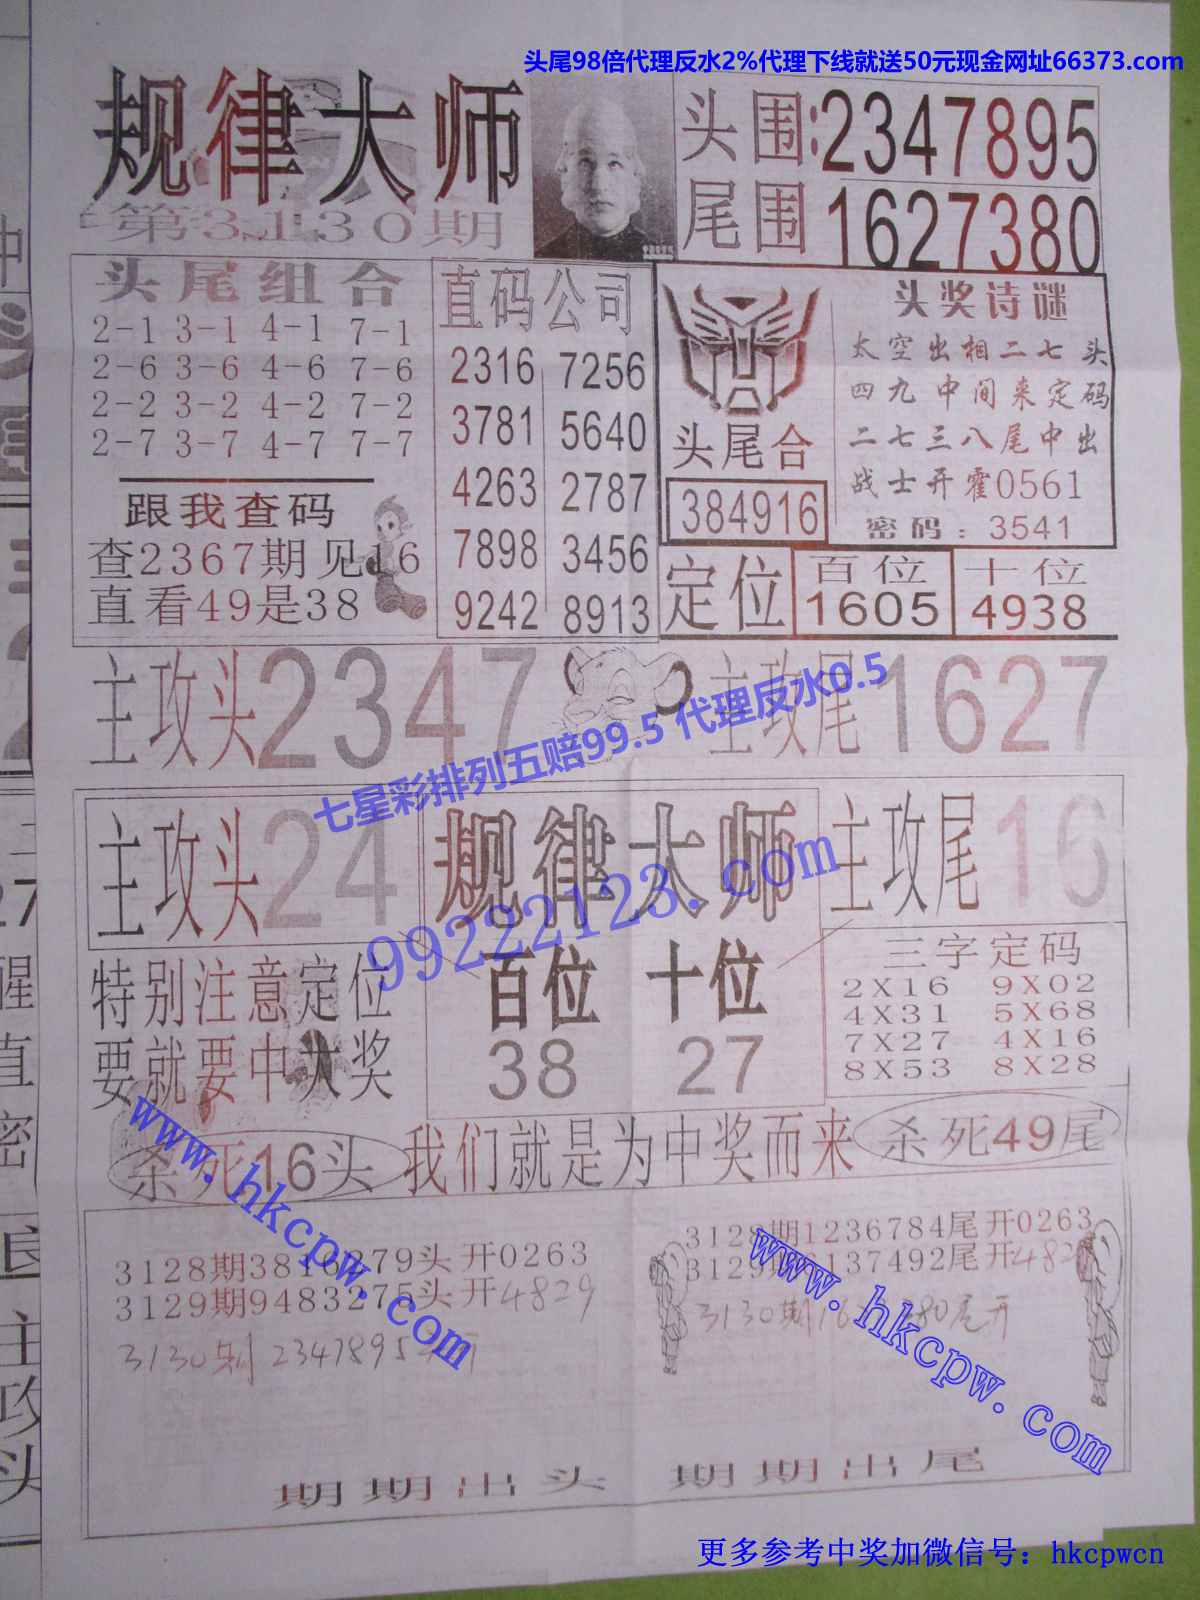 头尾98倍代理反水2%代理下线就送50元现金网址66373.com
规律大师
第3130期
头围:2347895
尾围1627380
头尾组合
2-1 3-1 4-1 7-1
2-6 3-6 4-6 7-6
2-2 3-2 4-2 7-2
2-7 3-7 4-7 7-7
跟我查码
查2367期见16
直看49是38
直码公司
2316 7256
3781 5640
4263 2787
7898 3456
9242 8913
头尾合
384916
头奖诗谜
太空出相二七头
四九中间来定码
二七三八尾中出
战士开霍0561
密码:3541
定位
百位
1605
十位
4938
主攻头2347
主攻尾1627
七星彩排列五赔99.5 代理反水0.5
主攻头24
规律大师
主攻尾16
99222123.com
特别注意定位
要就要中大奖
百位 十位
38 27
三字定码
2X16 9X02
4X31 5X68
7X27 4X16
8X53 8X28
杀死16头
我们就是为中奖而来
杀死49尾
www.hkcpw.com
3128期3816279头开0263
3129期9483275头开4829
3130期2347895
3128期1236784尾开0263
3129期6137492尾开4829
3130期1627380尾开
www.hkcpw.com
期期出头 期期出尾
更多参考中奖加微信号：hkcpwcn